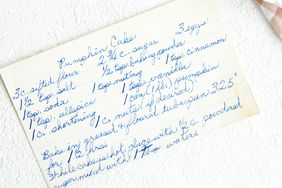 Pumpkin Cake
3 c. sifted flour 2 3/4 c. sugar 3 eggs
1/2 tsp salt 1/2 tsp. baking powder
1 tsp. soda 1 tsp. nutmeg 1 tsp. cinnamon
1 tsp. allspice 1 tsp. vanilla
1 c. shortening 1 can (1 lb.) pumpkin
1 c. nuts (if desired)
Bake in greased & floured tube pan 325°
for 1 1/2 hrs.
While cake is hot glaze with 1/2 c. powdered
sugar mixed with 1 Tbsp water